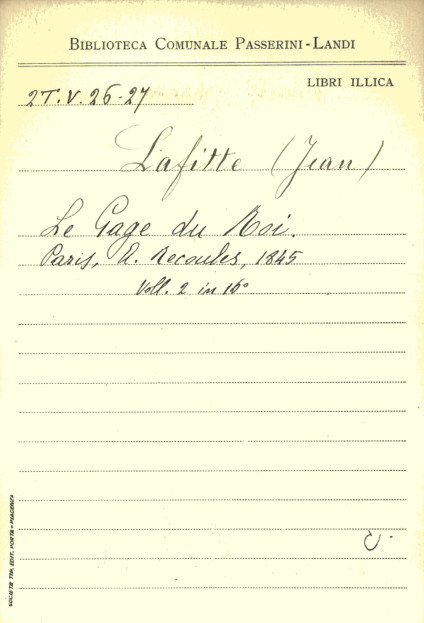 BIBLIOTECA COMUNALE PASSERINI-LANDI
LIBRI ILLICA
2T.V. 26-27
Lafitte (Jean)
Le Gage du Roi.
Paris, A. Recoules, 1845
Voll. 2 in 16°
SOCIETÀ TIP. EDIT. PORTA - PIACENZA